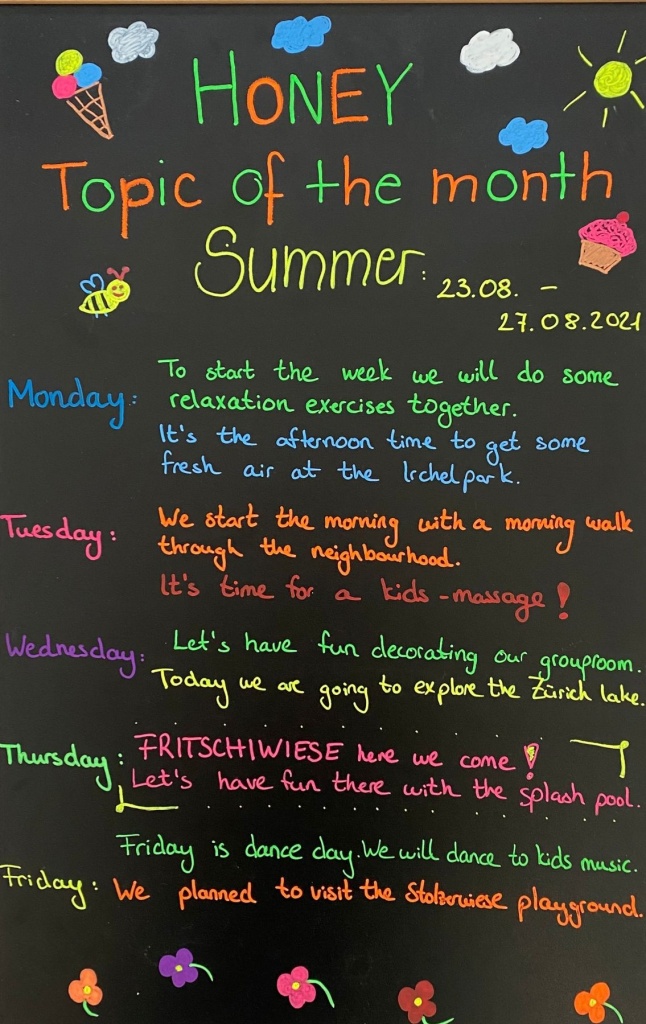 HONEY
Topic of the month
Summer:
23.08. –
27.08.2021
Monday:
To start the week we will do some
relaxation exercises together.
It's the afternoon time to get some
fresh air at the Irchelpark.
Tuesday:
We start the morning with a morning walk
through the neighbourhood.
It's time for a kids-massage!
Wednesday:
Let's have fun decorating our grouproom.
Today we are going to explore the Zürich lake.
Thursday:
FRITSCHIWIESE here we come!
Let's have fun there with the splash pool.
Friday:
Friday is dance day. We will dance to kids music.
We planned to visit the playground.